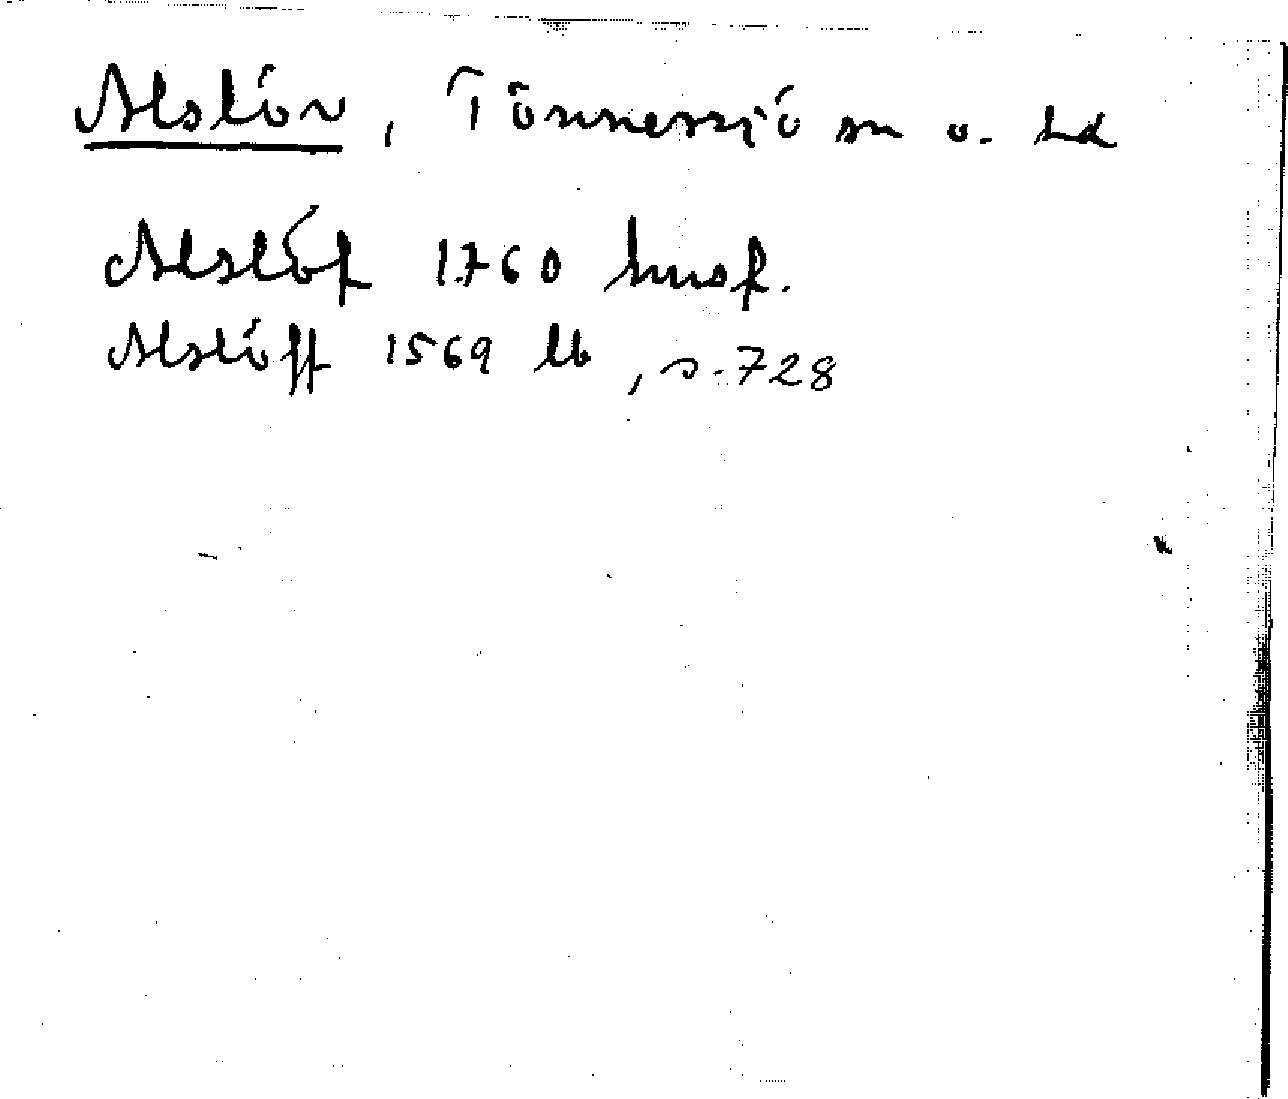 Alslöv, Tönnersjö sn o. hd
Alslöf 1760 husf.
Alslöff 1569 lb, s. 728